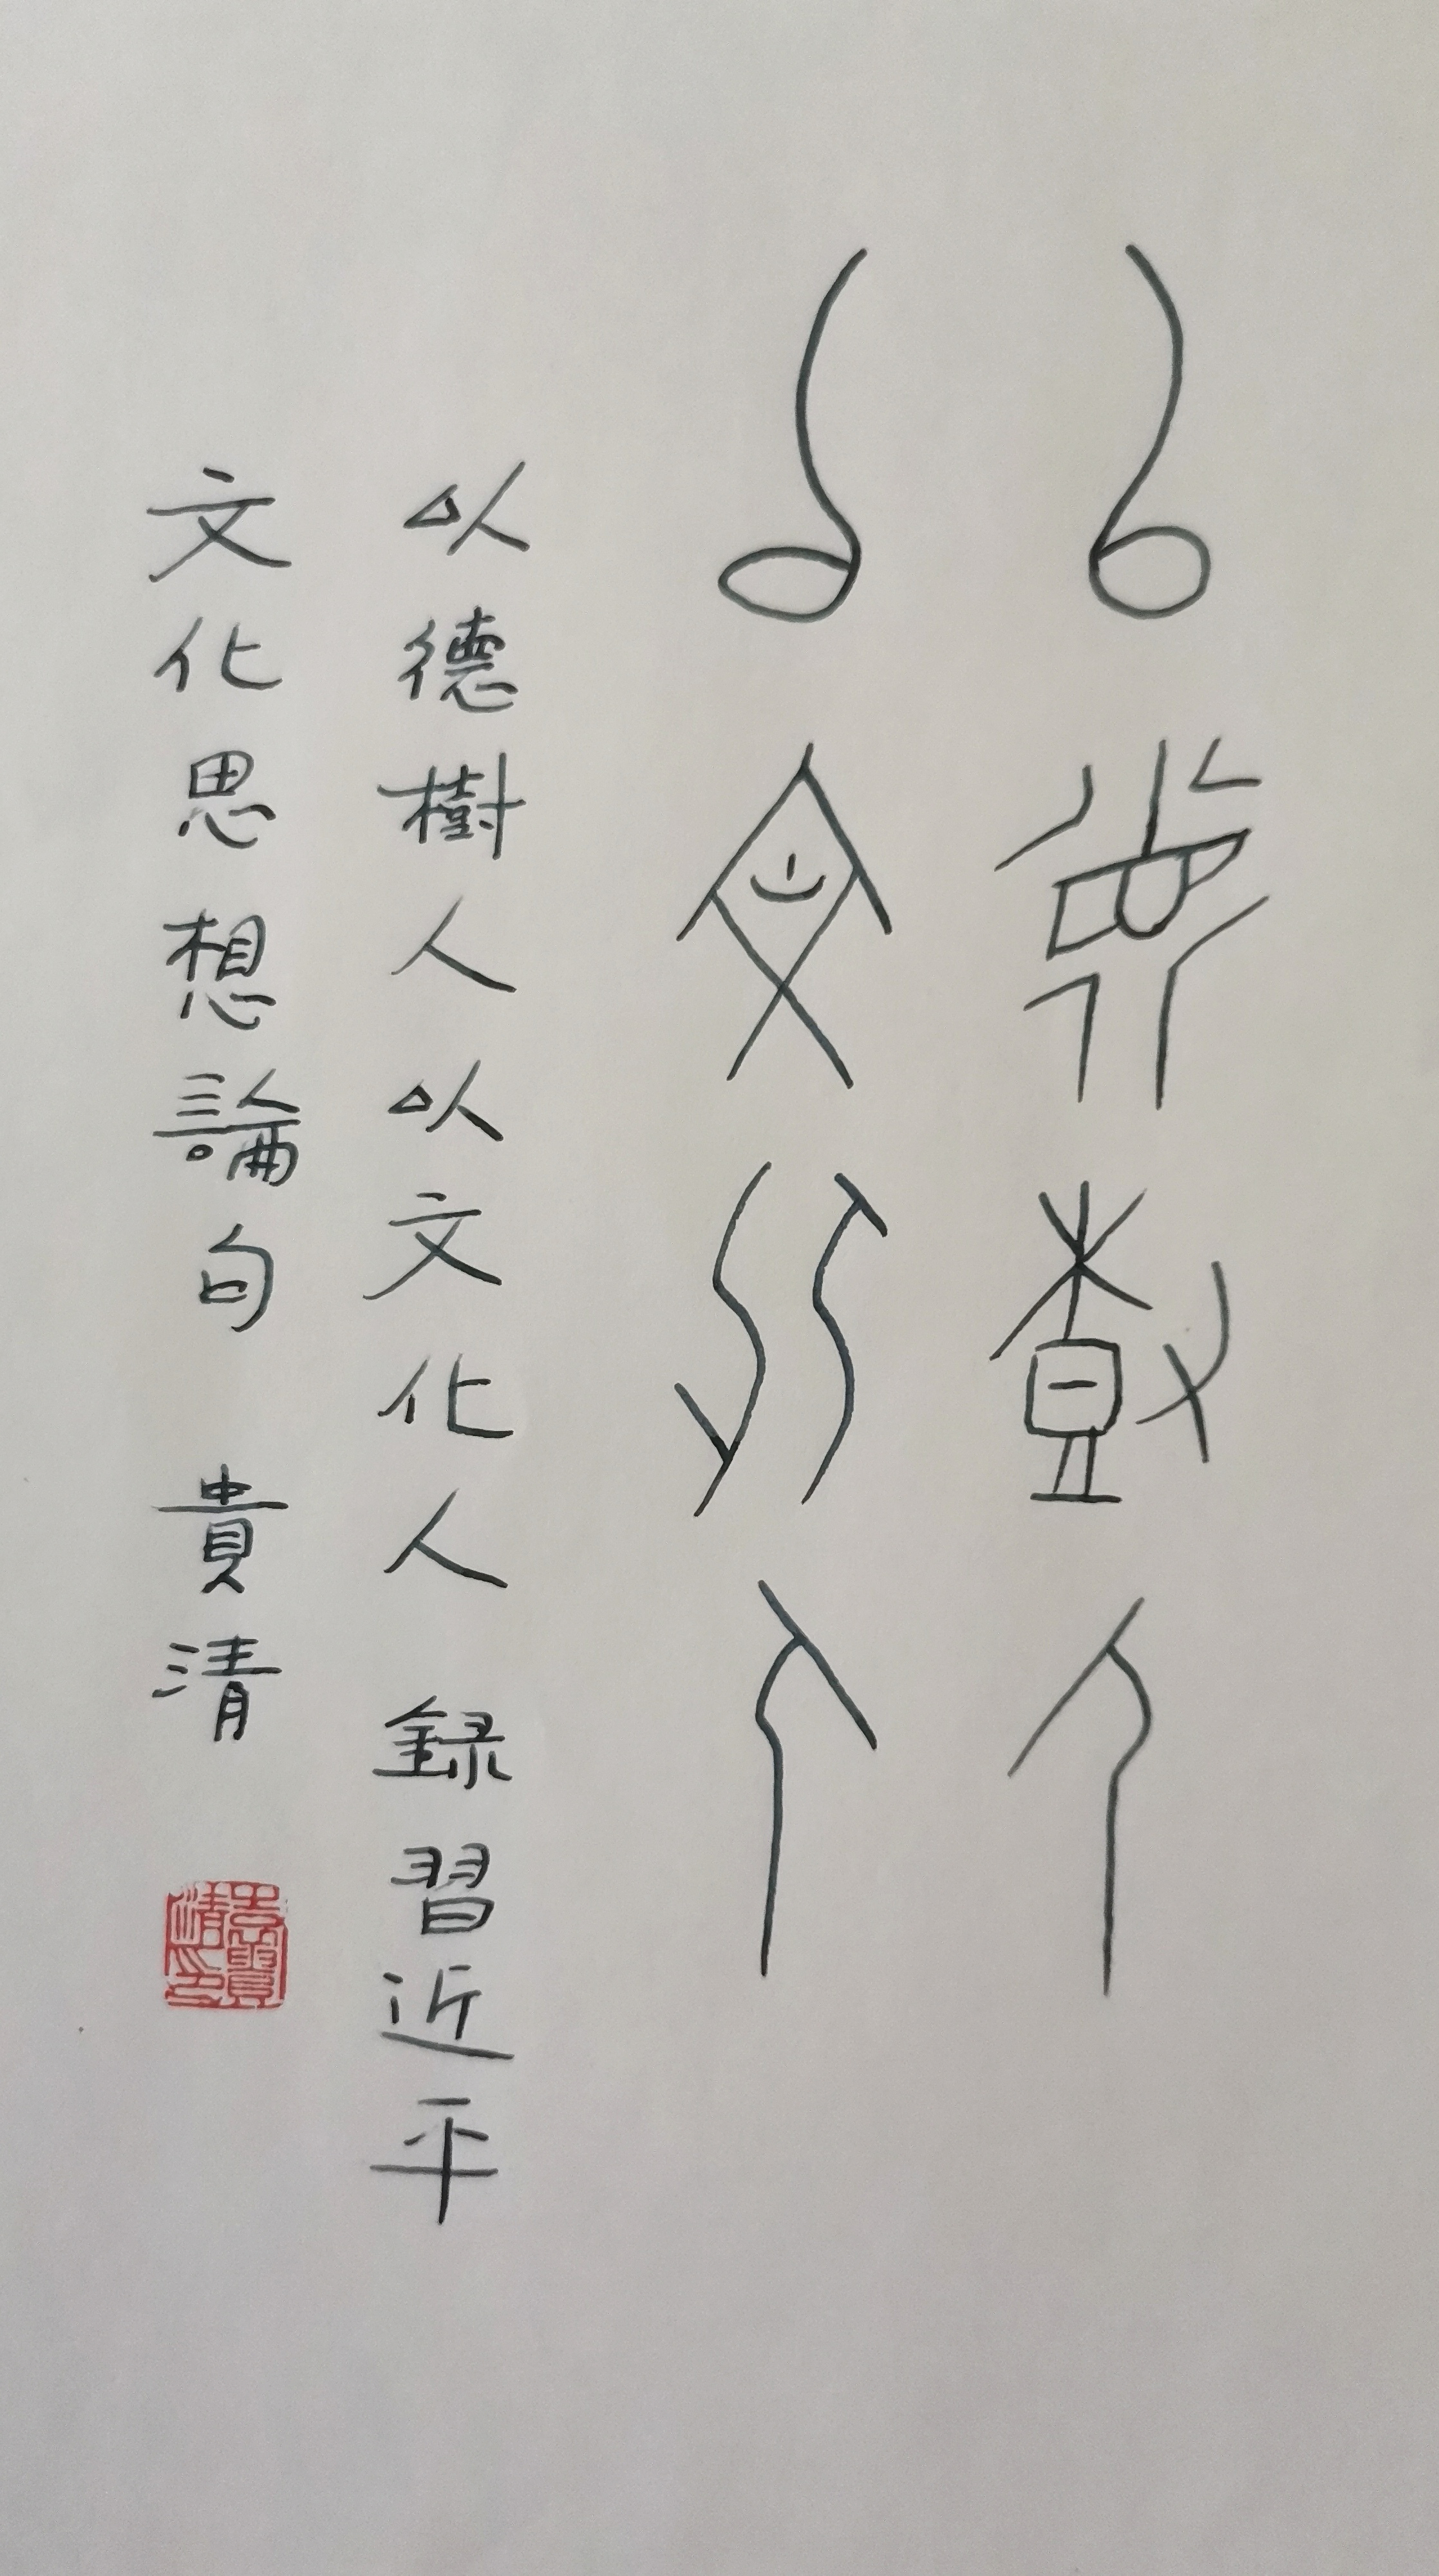 以德樹人
以文化人
以德樹人以文化人 録習近平
文化思想論句 貴清